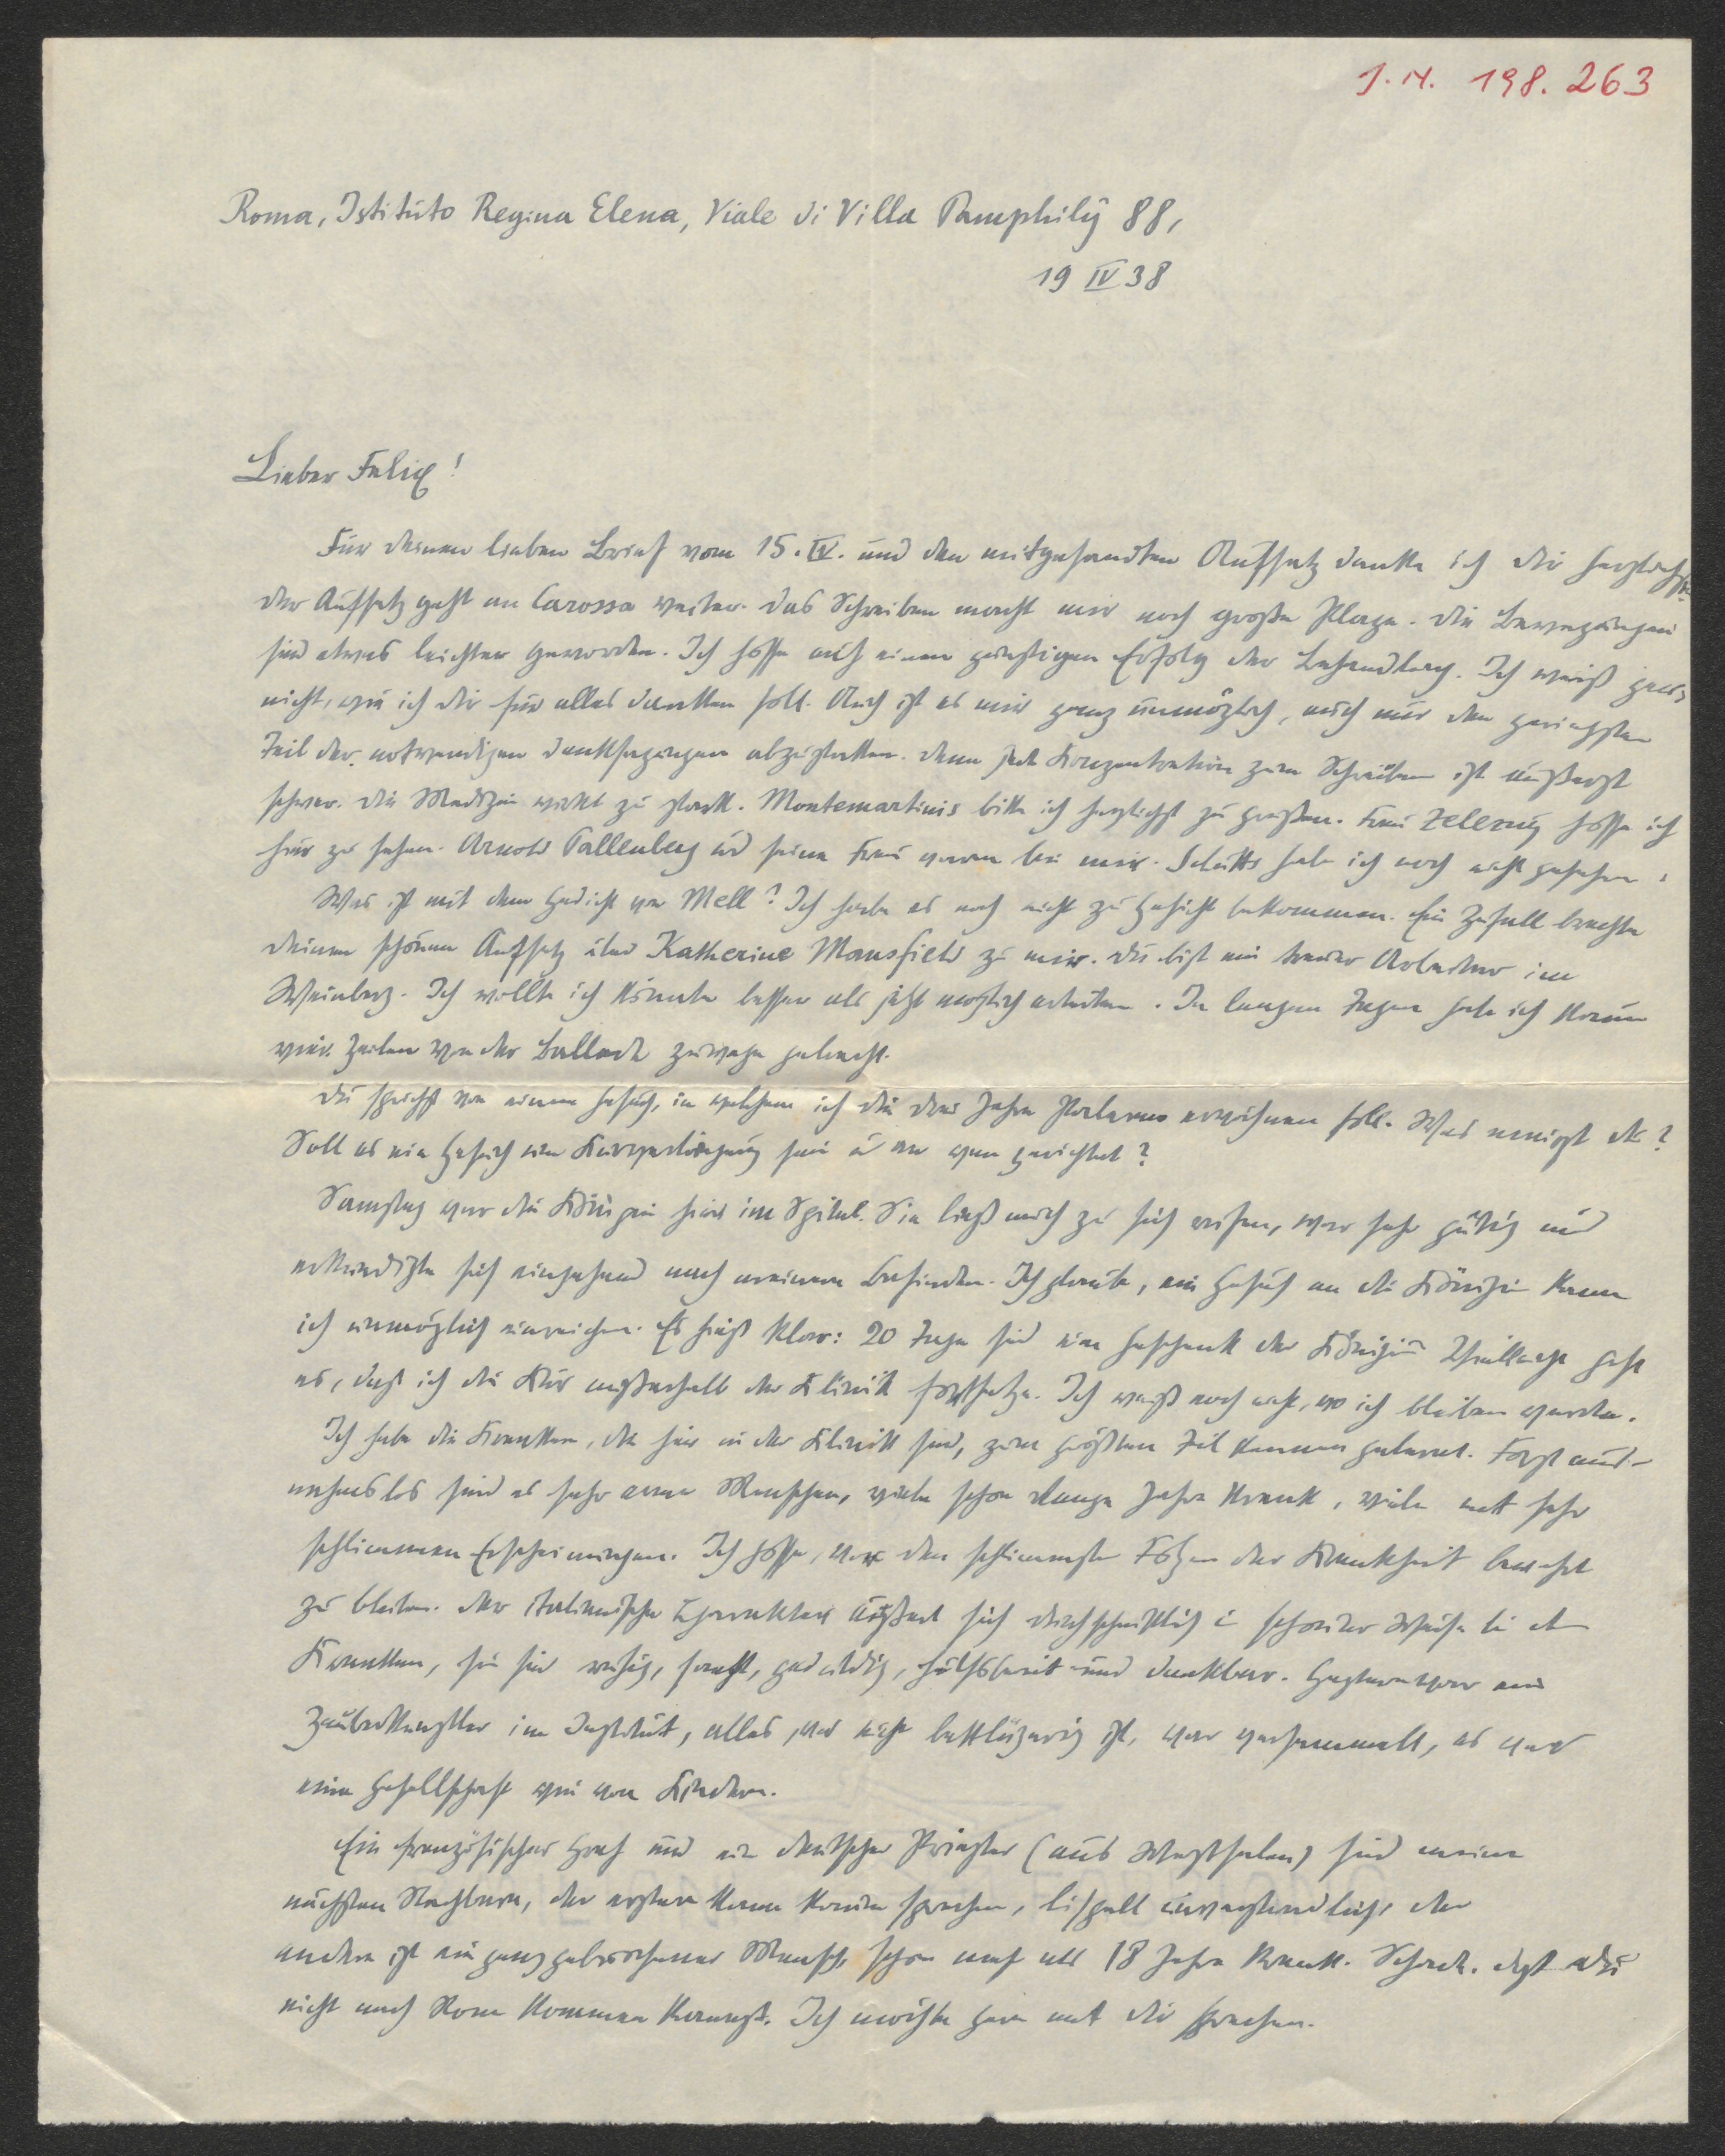 J. N. 198.263
Roma, Istituto Regina Elena, Viale di Villa Pamphily 88,
19 IV 38
Lieber Felix!
Für deinen lieben Brief vom 15. IV. und den mitgesandten Aufsatz danke ich dir herzlichst.
Der Aufsatz geht an Carossa weiter. Das Schreiben macht mir noch große Plage. Die Bewegungen
sind etwas leichter geworden. Ich hoffe auf einen günstigen Erfolg der Behandlung. Ich weiß gar
nicht, wie ich dir für alles danken soll. Auch ist es mir ganz unmöglich, auch nur den geringsten
Teil der notwendigen Danksagungen abzustatten. Denn jede Konzentration zum Schreiben ist äußerst
schwer. Die Medizin wirkt zu stark. Montemartinis bitte ich herzlichst zu grüßen. Frau Zelezny hoffe ich
hier zu sehen. Arnold Pallenberg und seine Frau waren bei mir. Schütts habe ich noch nicht gesehen.
Was ist mit dem Gedicht von Mell? Ich habe es noch nicht zu Gesicht bekommen. Ein Zufall brachte
deinen schönen Aufsatz über Katherine Mansfield zu mir. Du bist ein treuer Arbeiter im
Weinberg. Ich wollte ich könnte besser als jetzt möglich arbeiten. In langen Tagen habe ich kaum
vier Zeilen von der Ballade zuwege gebracht.
Du sprichst von einem Gesuch, in welchem ich die drei Jahre Palermo erwähnen soll. Was meinst du?
Soll es ein Gesuch um Kurverlängerung sein u an wen gerichtet?
Samstag war die Königin hier im Spital. Sie ließ mich zu sich rufen, war sehr gütig und
erkundigte sich eingehend nach meinem Befinden. Ich glaube, ein Gesuch an die Königin kann
ich unmöglich einreichen. Es hieß klar: 20 Tage sind ein Geschenk der Königin. Vielleicht geht
es, daß ich die Kur außerhalb der Klinik fortsetze. Ich weiß noch nicht, wo ich bleiben werde.
Ich habe die Kranken, die hier in der Klinik sind, zum größten Teil kennen gelernt. Fast aus-
nahmslos sind es sehr arme Menschen, viele schon lange Jahre krank, viele mit sehr
schlimmen Erscheinungen. Ich hoffe, vor den schlimmsten Folgen der Krankheit bewahrt
zu bleiben. Der italienische Charakter äußert sich durchschnittlich in schöner Weise bei den
Kranken, sie sind ruhig, sanft, geduldig, hülfsbereit und dankbar. Gestern war ein
Zauberkünstler im Institut, alles, was nicht bettlägerig ist, war versammelt, es war
eine Gesellschaft wie von Kindern.
Ein französischer Graf und ein deutscher Priester (aus Westfalen) sind meine
nächsten Nachbarn, der erstere kann kaum sprechen, lispelt unverständlich, der
andere ist ein ganz gebrochener Mensch, schon mehr als 18 Jahre krank. Schade, daß du
nicht nach Rom kommen kannst. Ich möchte gern mit dir sprechen.